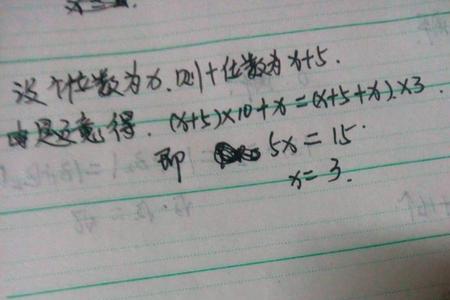 设个位数为x.则十位数为x+5.
由题意得.(x+5)×10+x=(x+5+x)×3.
即 5x=15.
x=3.